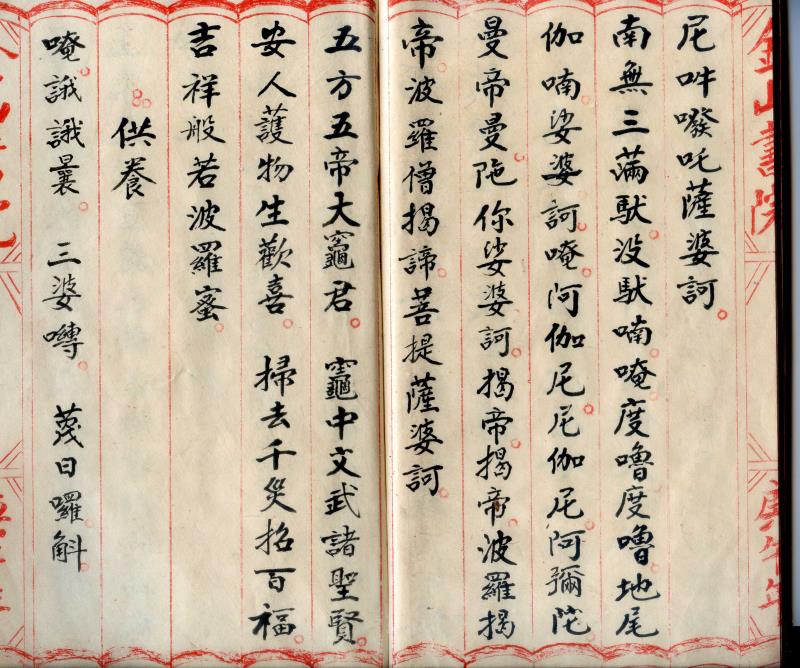 尼吽㗶吒薩婆訶
南無三滿馱没馱喃唵度嚕度嚕地尾
伽喃娑婆訶唵阿伽尼尼伽尼阿彌陀
曼帝曼陁你娑婆訶揭帝揭帝波羅揭
帝波羅僧揭諦菩提薩婆訶
五方五帝大竈君 竈中文武諸聖賢
安人護物生歡喜 掃去千災招百福
吉祥般若波羅蜜
供養
唵誐誐曩 三婆囀 蔑日囉斛